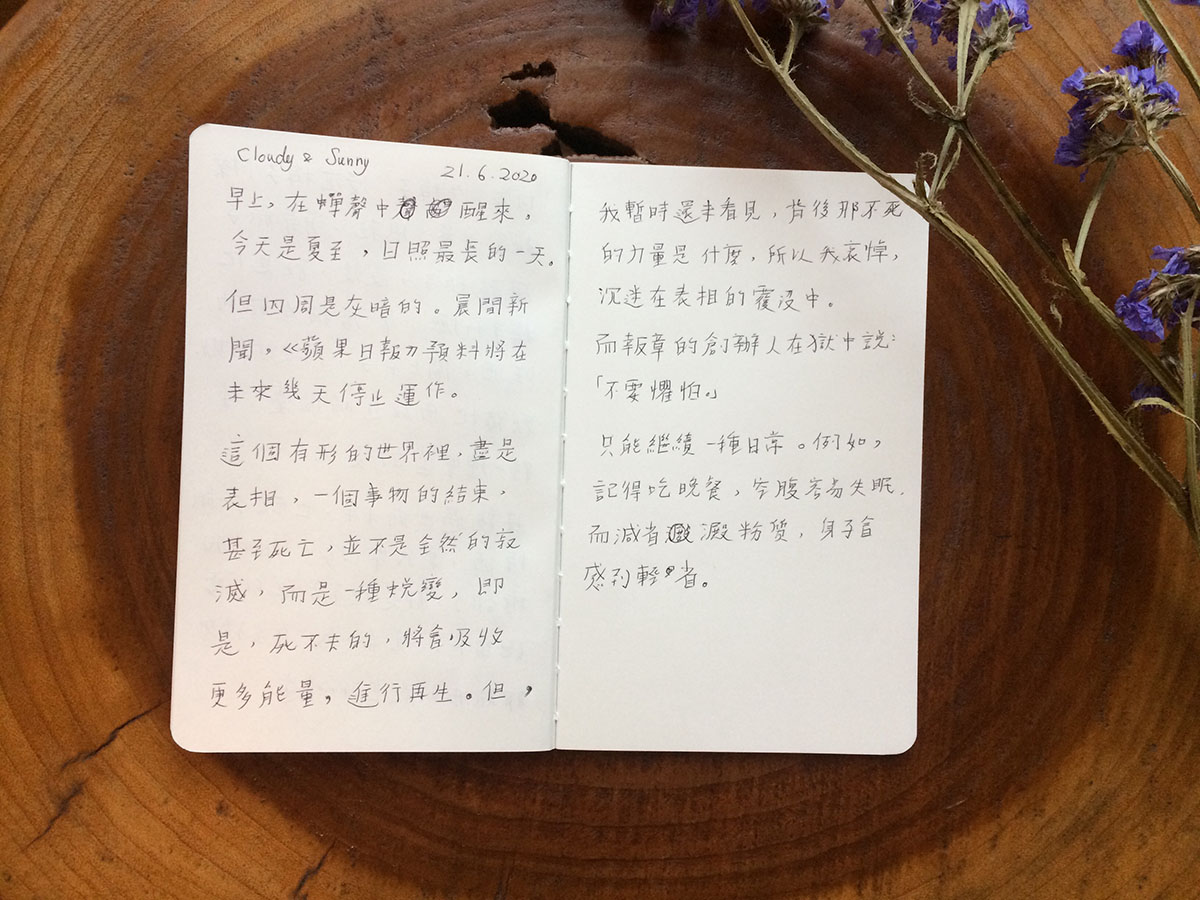 Cloudy & Sunny
21.6.2020
早上,在蟬聲中醒來,
今天是夏至,日照最長的一天。
但四周是灰暗的。晨間新
聞,《蘋果日報》預料將在
未來幾天停止運作。
這個有形的世界裡,盡是
表相,一個事物的結束,
甚至死亡,並不是全然的寂
滅,而是一種蛻變,即
是,死不去的,將會吸收
更多能量,進行再生。但,
我暫時還未看見,背後那不死
的力量是什麼,所以我哀悼,
沉迷在表相的覆沒中。
而報章的創辦人在獄中說:
「不要懼怕。」
只能繼續一種日常。例如,
記得吃晚餐,空腹容易失眠,
而減省澱粉質,身子會
感到輕省。